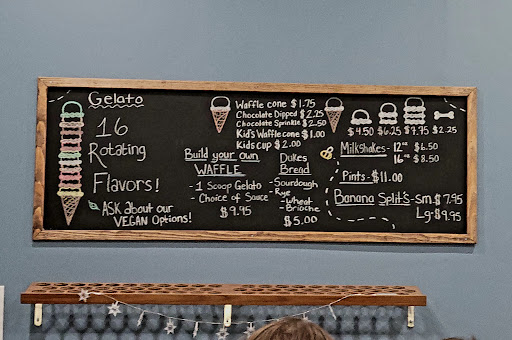 Gelato
16
Rotating
Flavors!
ASK about our
VEGAN Options!
Waffle cone $1.75
Chocolate Dipped $2.25
Chocolate Sprinkle $2.50
Kid's Waffle cone $1.00
Kids cup $2.00
Build your own
WAFFLE
- 1 Scoop Gelato
- Choice of Sauce
$9.95
Dukes
Bread
- Sourdough
- Rye
- Wheat
- Brioche
$5.00
$4.50 $6.25 $7.75 $2.25
Milkshakes- 12oz $6.50
16oz $8.50
Pints- $11.00
Banana Split's-sm.$7.95
Lg-$9.95